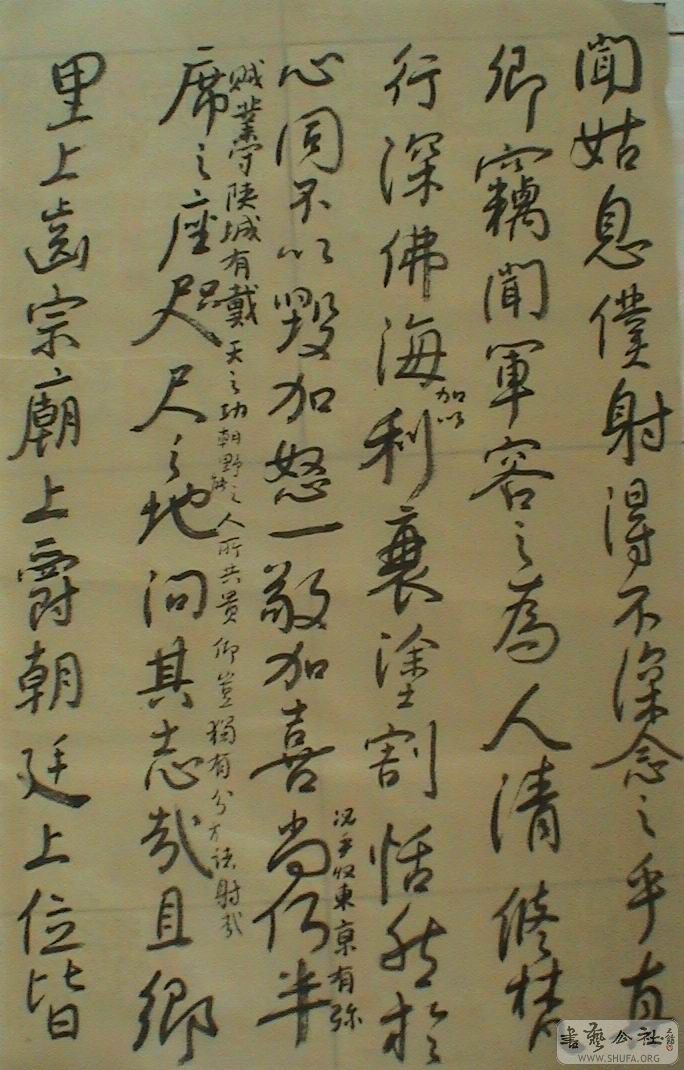 闻姑息仆射得不深念之乎真
卿竊聞軍容之為人清修梵
行深佛海
加以
利衰塗割恬然於
心固不以毀加怒一敬加喜尚何半
況乎收東京有殄
賊業守陝城有戴天之功朝野之人所共貴仰豈獨有分於僕射哉
席之座咫尺之地汩其志哉且鄉
里上齒宗廟上爵朝廷上位皆
書藝公社
WWW.SHUFA.ORG